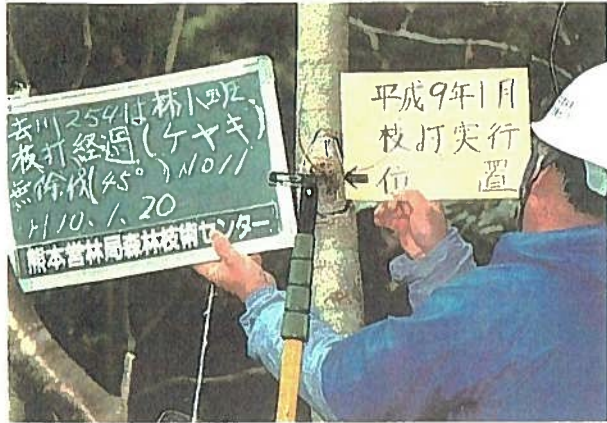 去川254は林小班
枝打経過(ケヤキ)
無除伐(45°) NO11
H10.1.20
熊本営林局森林技術センター
平成9年1月
枝打実行
位置